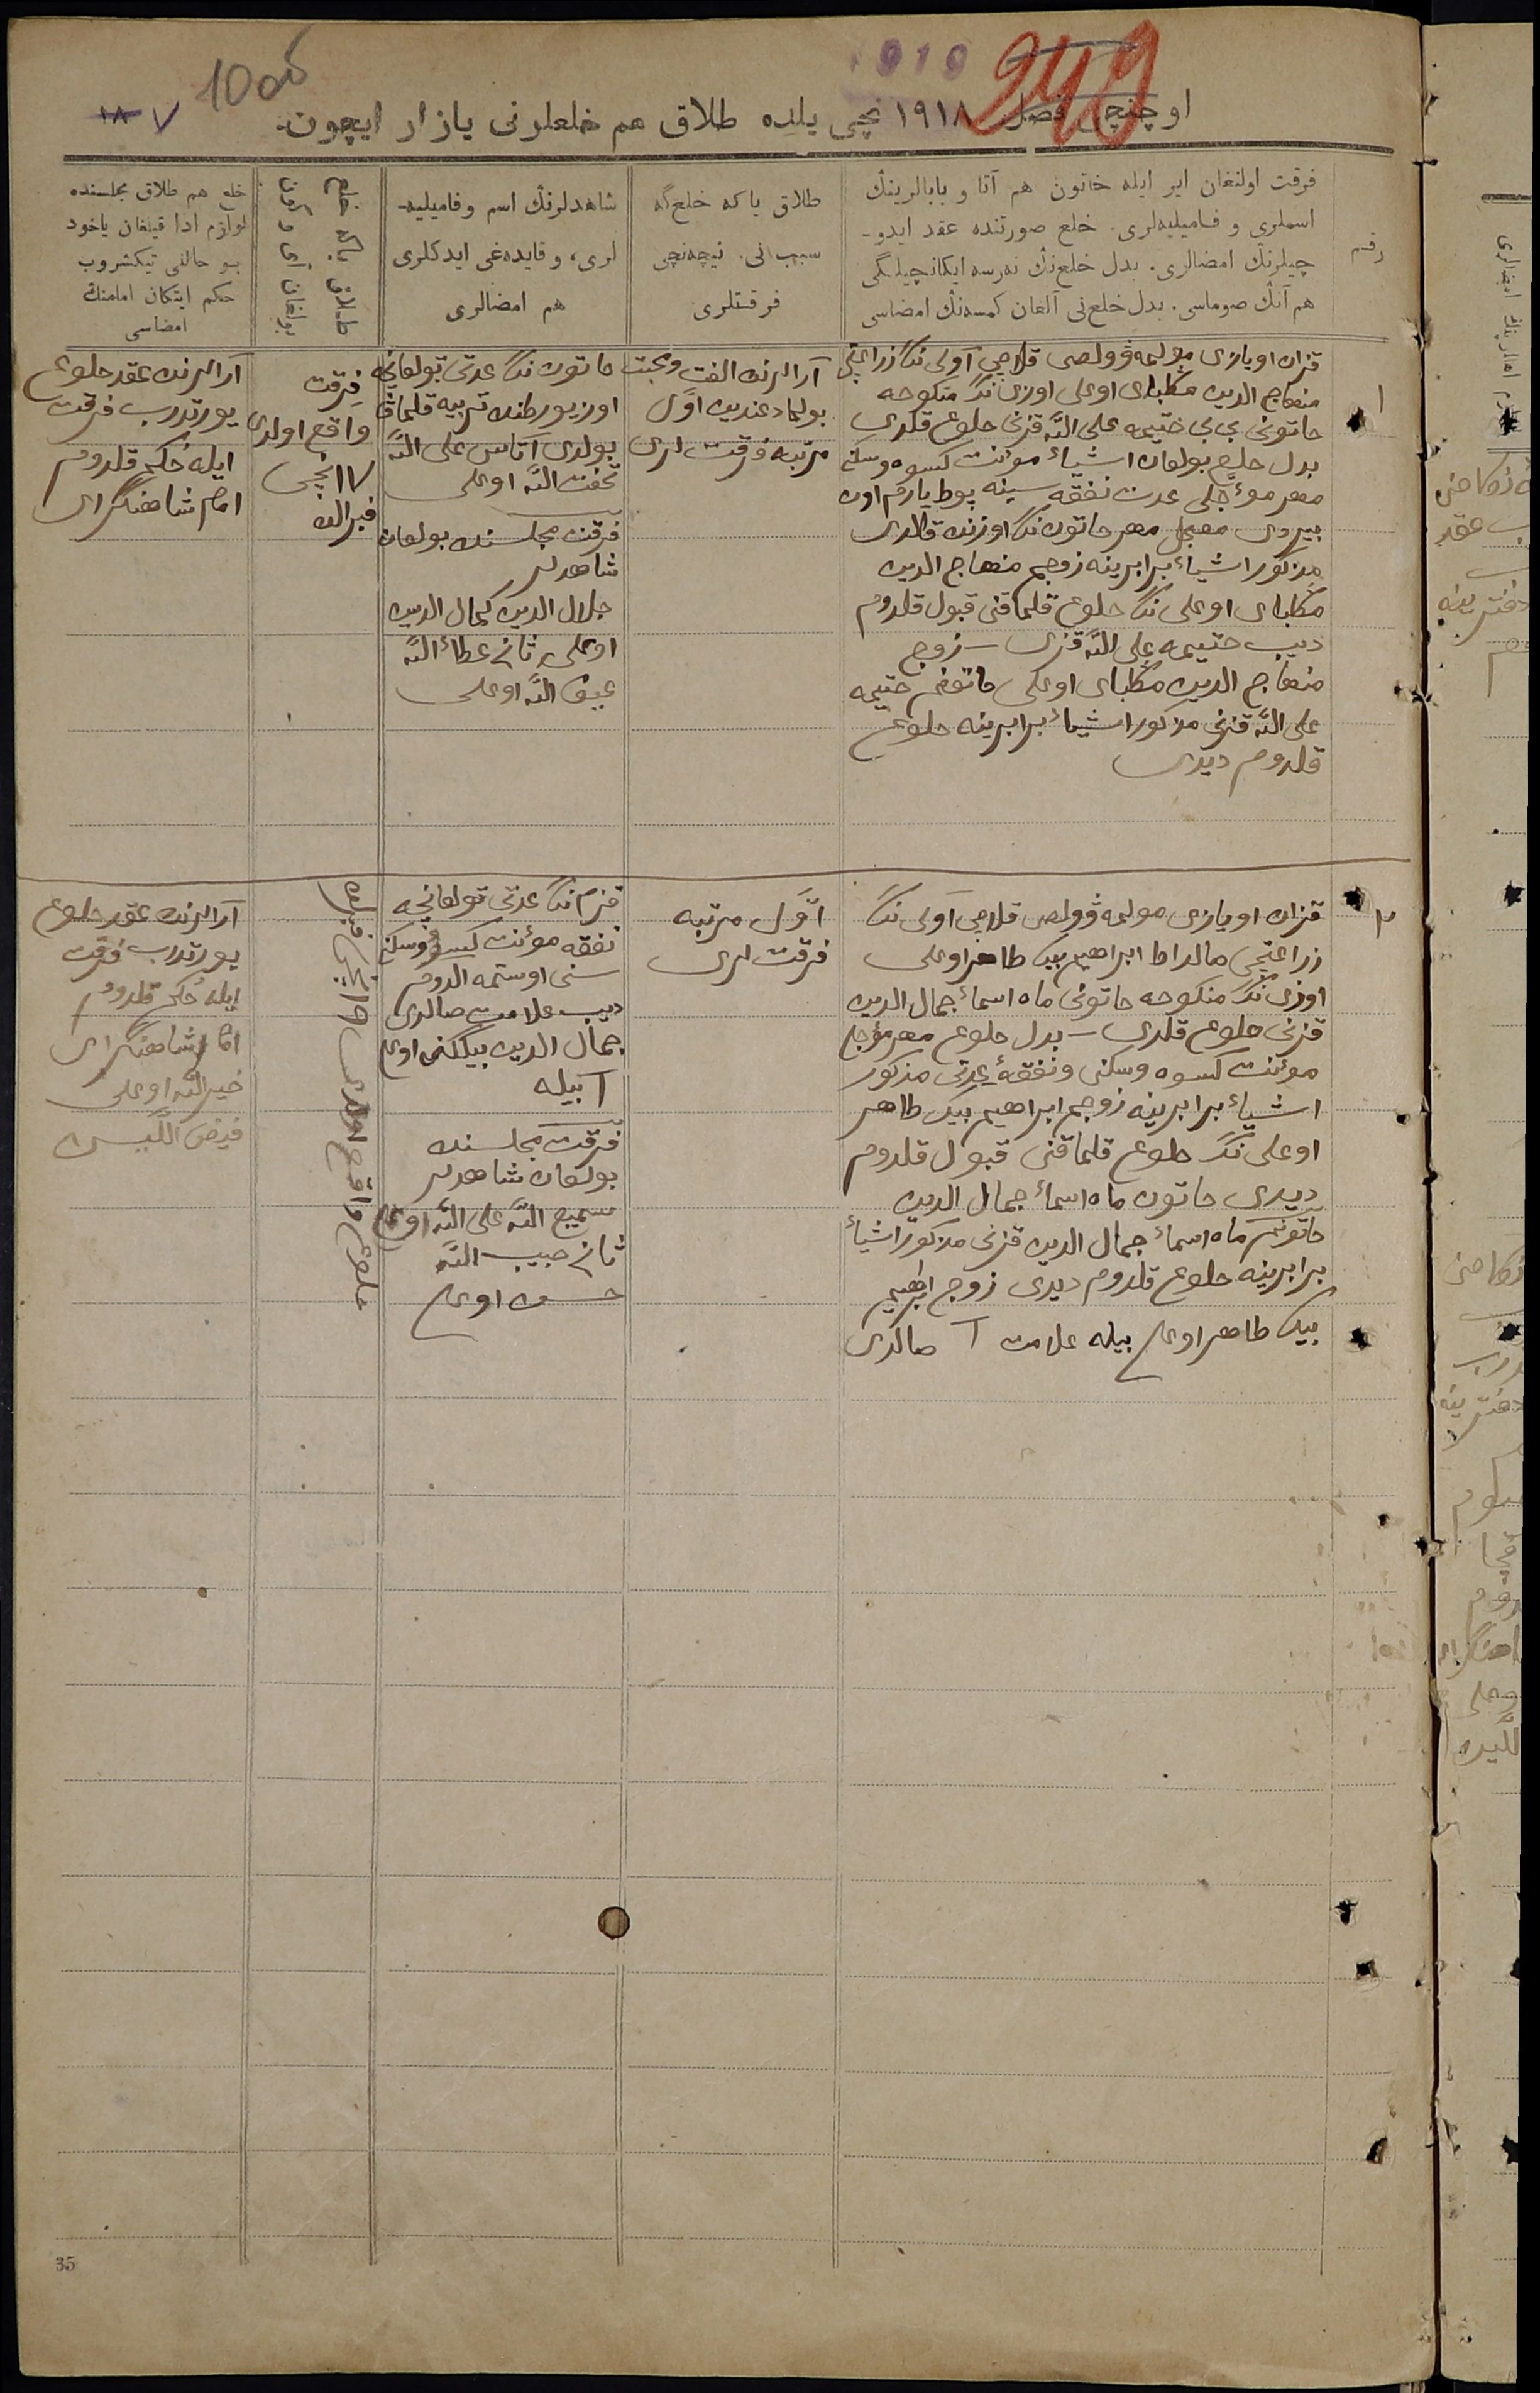 1918
249
100об
اوچنچی فصل ١٩١٨ نچی یلده طلاق هم خلعلرنی یازار ایچون.
٧
رقم
فرقت اولنغان ایر ایله خاتون هم آتا و بابالرینڭ
اسملری و فامیلیه‌لری. خلع صورتنده عقد ایدو-
چیلرنڭ امضالری. بدل خلع‌نڭ نه‌رسه ایکانچیلگی
هم آنڭ صوماسی. بدل خلع‌نی آلغان کمسه‌نڭ امضاسی
طلاق یا که خلع‌گه
سبب‌نی. نیچه‌نچی
فرقتلری
شاهدلرنڭ اسم و فامیلیه-
لری، و قایده‌غی ایدکلری
هم امضالری
طلاق یاکه خلع
بولغان آی و کون
خلع هم طلاق مجلسنده
لوازم ادا قیلغان یاخود
بو حالنی تیکشروب
حکم ایتکان امامنڭ
امضاسی
١
قزان اویازی مولمه وولصی قلاچی آولی ننگ زراعتچی
منهاج الدین مطلبای اوغلی اوزی ننگ منکوحه
خاتونی بی بی ختیمه علی اللّه قزنی خلوع قلدی
بدل خلع بولغان اشیاء مؤنت کسوه وسکنی
مهر مؤجلی عدت نفقه سینه پوط یارم اون
بیردی معجل مهر خاتون ننگ اوزنده قالدی
مذکور اشیاء برابرینه زوجم منهاج الدین
مطلبای اوغلی ننگ خلوع قلماقنی قبول قلدوم
دیب ختیمه علی اللّه قزی زوج
منهاج الدین مطلبای اوغلی خاتونم ختیمه
علی اللّه قزنی مذکور اشیاء برابرینه خلوع
قلدوم دیدی
آرالرنده الفت ومحبت
بولمادغندین اوّل
مرتبه فرقت لری
خاتون ننگ عدتی تولغانچه
اوز یورطنده تربیه قلماقچی
بولدی آتاسی علی اللّه
نخفت اللّه اوغلی
فرقت مجلسنده بولغان
شاهدلر
جلال الدین کمال الدین
اوغلی ثانی عطاء اللّه
عبیق اللّه اوغلی
فرقت
واقع اولدی
١٧ نچی
فبرالده
آرالرنده عقد خلوع
یورتدرب فرقت
ایله حکم قلدوم
امام شاهنگرای
٢
قزان اویازی مولمه وولصی قلاچی آولی ننگ
زراعتچی مالراط ابراهیم بیک طاهر اوغلی
اوزی ننگ منکوحه خاتونی ماه اسماء جمال الدین
قزنی خلوع قلدی بدل خلوع مهر مؤجل
مؤنت کسوه وسکنی ونفقهٔ عدتی مذکور
اشیاء برابرینه زوجم ابراهیم بیک طاهر
اوغلی ننگ خلوع قلماقنی قبول قلدوم
دیدی خاتون ماه اسماء جمال الدین
خاتونم ماه اسماء جمال الدین قزنی مذکور اشیاء
برابرینه خلوع قلدوم دیدی زوج ابراهیم
بیک طاهر اوغلی بیله علامت T صالدی
اوّل مرتبه
فرقت لری
قزم ننگ عدتی تولغانچه
نفقه مؤنت کسوه وسکنی
سنی اوستمه الدوم
دیب علامت صالدی
جمال الدین بیککنی اوغلی
T بیله
فرقت مجلسنده
بولغان شاهدلر
سمیع اللّه علی اللّه اوغلی
ثانی حبیب اللّه
حسن اوغلی
خلوع واقع اولدی ١٩ نچی فبرالده
آرالرنده عقد خلوع
یورتدرب فرقت
ایله حکم قلدوم
امام شاهنگرای
خیر اللّه اوغلی
فیض اللّین
35